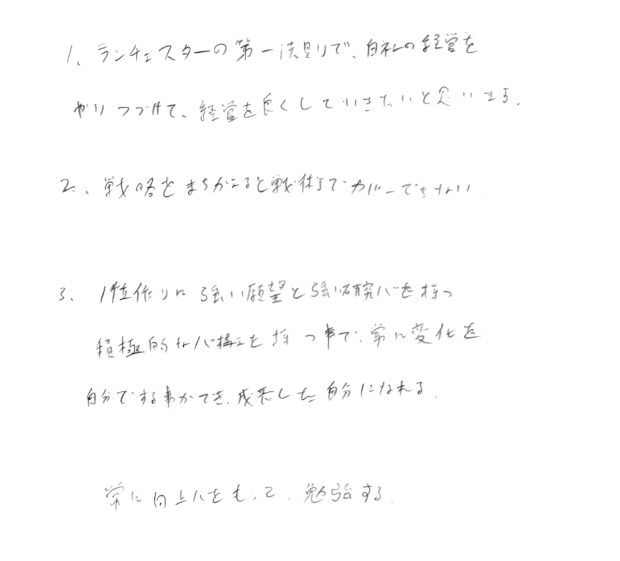 1、ランチェスターの第一法則で、自社の経営を
やりつづけて、経営を良くしていきたいと思います。
2、戦略をまちがえると戦術でカバーできない
3、1位作りに強い願望と強い研究心を持つ
積極的な心構えを持つ事で、常に変化を
自分でする事ができ、成長した自分になれる。
常に向上心をもって、勉強する。